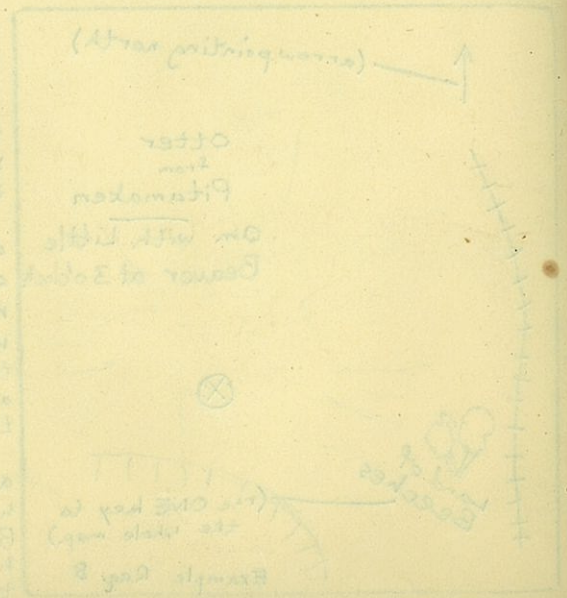 (arrow pointing north)
Otter
from
Pitamakan
Am with Little
Beaver at 3 o'clock
Land of
Beeches
(The ONE key to
the whole map)
Example Req. 8